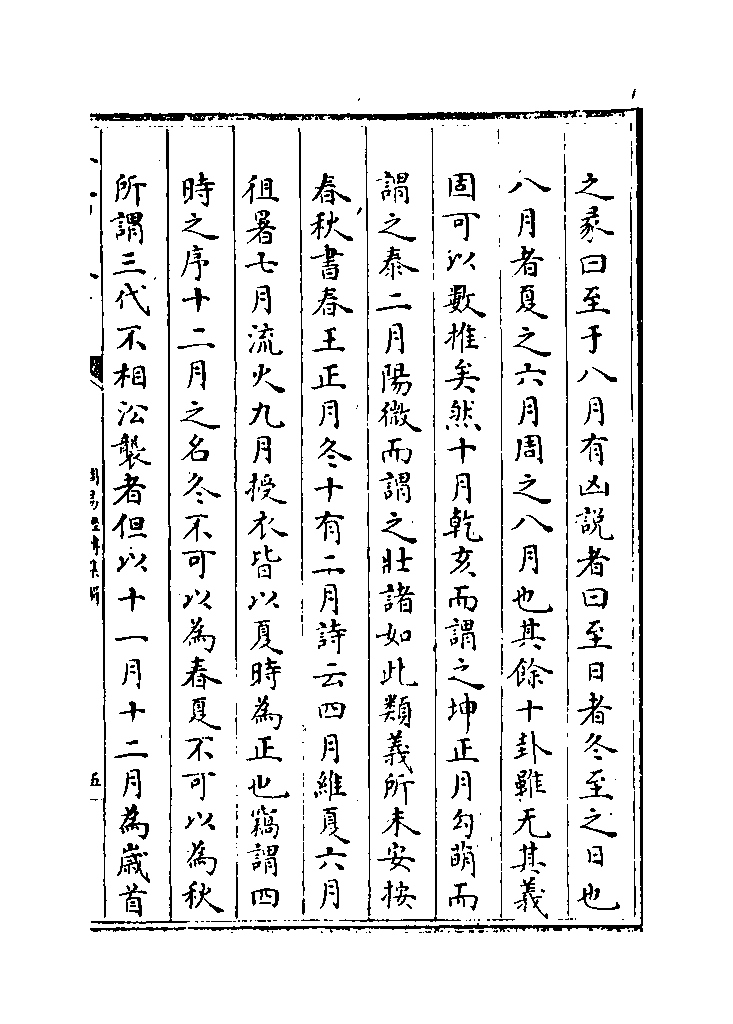 之彖曰至于八月有凶説者曰至日者冬至之日也
八月者夏之六月周之八月也其餘十卦雖无其義
固可以數推矣然十月乾亥而謂之坤正月勾萌而
謂之泰二月陽微而謂之壯諸如此類義所未安按
春秋書春王正月冬十有二月詩云四月維夏六月
徂暑七月流火九月授衣皆以夏時為正也竊謂四
時之序十二月之名冬不可以為春夏不可以為秋
所謂三代不相㳂襲者但以十一月十二月為嵗首
五